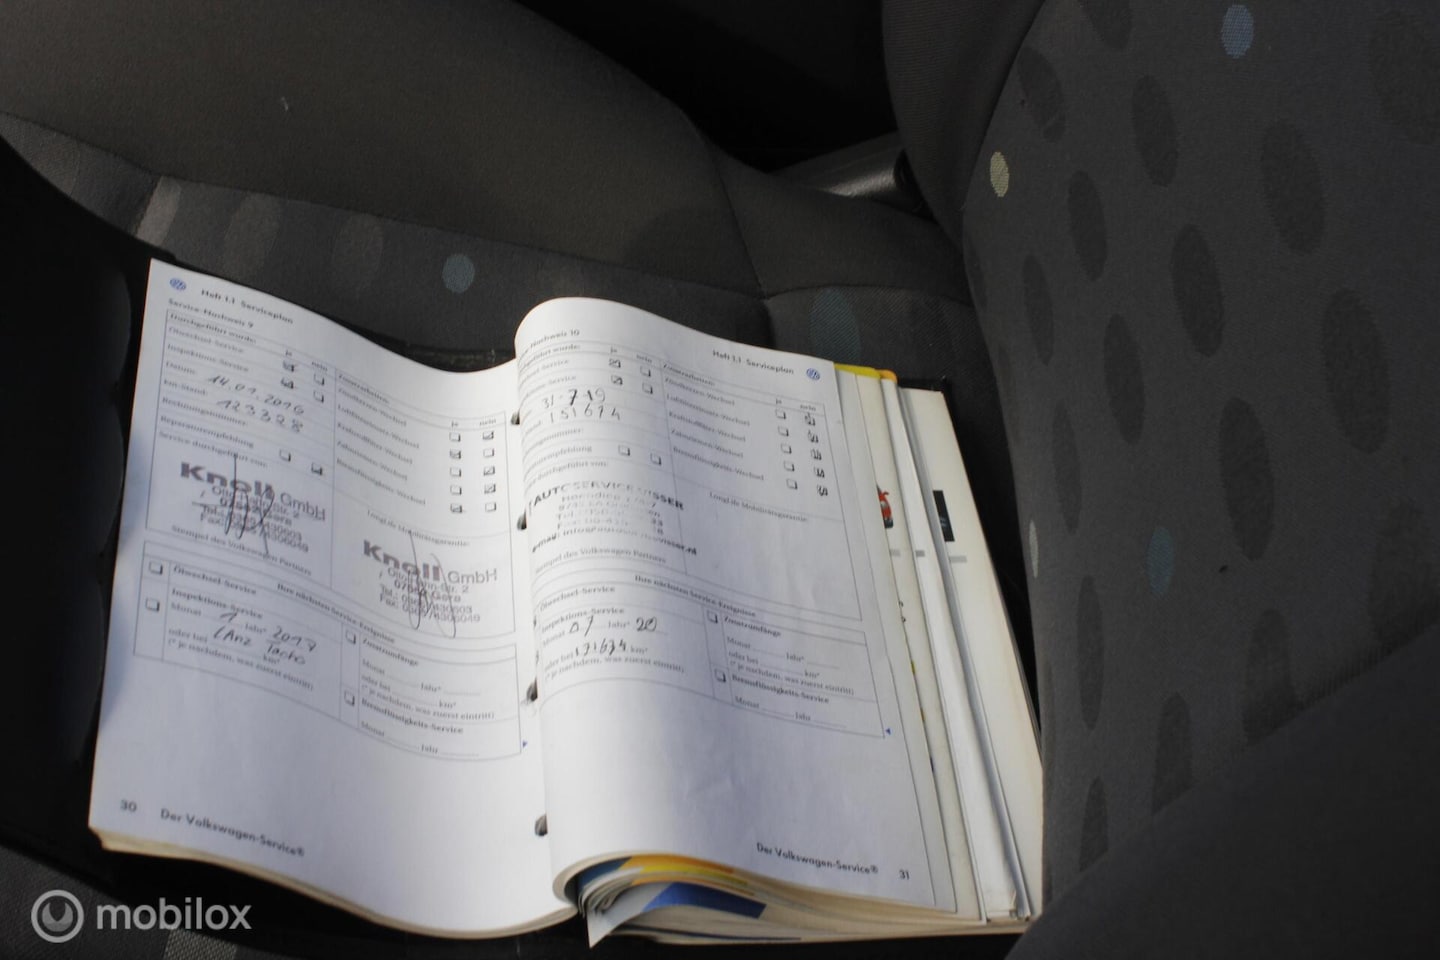 Heft 1.1 Serviceplan
Service-Nachweis 9
Durchgeführt wurde:
ja nein
Ölwechsel-Service
Inspektions-Service
Datum: 14.01.2016
km-Stand: 123328
Rechnungsnummer:
Reparaturempfehlung
Service durchgeführt von:
Knoll GmbH
Otto-Hahn-Str. 2
07552 Gera
Stempel des Volkswagen Partners
Zusatzarbeiten:
ja nein
Zündkerzen-Wechsel
Luftfiltereinsatz-Wechsel
Kraftstofffilter-Wechsel
Zahnriemen-Wechsel
Bremsflüssigkeits-Wechsel
LongLife Mobilitätsgarantie:
Knoll GmbH
Otto-Hahn-Str. 2
Gera
Ihre nächsten Service-Ereignisse
Ölwechsel-Service
Inspektions-Service
Monat 1 Jahr* 2017
oder bei km*
(* je nachdem, was zuerst eintritt)
Zusatzumfänge
Monat Jahr*
oder bei km*
(* je nachdem, was zuerst eintritt)
Bremsflüssigkeits-Service
Monat Jahr
30 Der Volkswagen-Service®
Heft 1.1 Serviceplan
Nachweis 10
ja nein
31-7-19
151674
LongLife Mobilitätsgarantie:
Zusatzarbeiten:
ja nein
Zündkerzen-Wechsel
Luftfiltereinsatz-Wechsel
Kraftstofffilter-Wechsel
Zahnriemen-Wechsel
Bremsflüssigkeits-Wechsel
AUTOSERVICE VISSER
Stempel des Volkswagen Partners
Ihre nächsten Service-Ereignisse
Ölwechsel-Service
Inspektions-Service
Monat 07 Jahr* 20
oder bei 171674 km*
(* je nachdem, was zuerst eintritt)
Zusatzumfänge
Monat Jahr*
oder bei km*
(* je nachdem, was zuerst eintritt)
Bremsflüssigkeits-Service
Monat Jahr
Der Volkswagen-Service® 31
mobilox